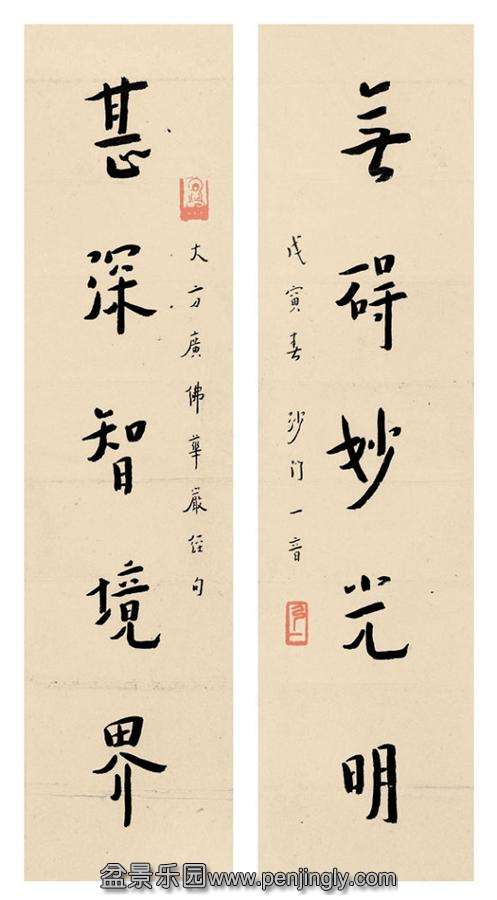 甚深智境界
大方廣佛華嚴經句
無碍妙光明
戊寅春 沙门一音
盆景乐园www.penjingly.com